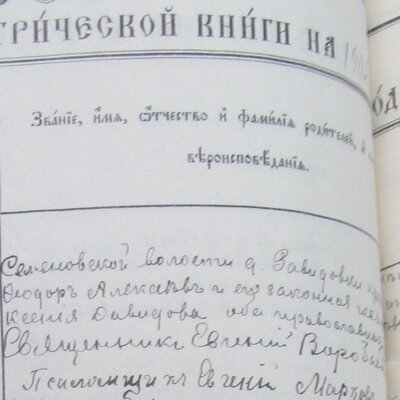 ТРИЧЕСКОЙ КНИГИ НА 191
Званіе, имя, отчество и фамилія родителей, и
вѣроисповѣданія.
Семеновской волости д. Завидовки
Ѳеодоръ Алексѣевъ и его законная жена
Ксенія Давидова оба православные
Священникъ Евгеній Воробьев
Псаломщикъ Евгеній Марков